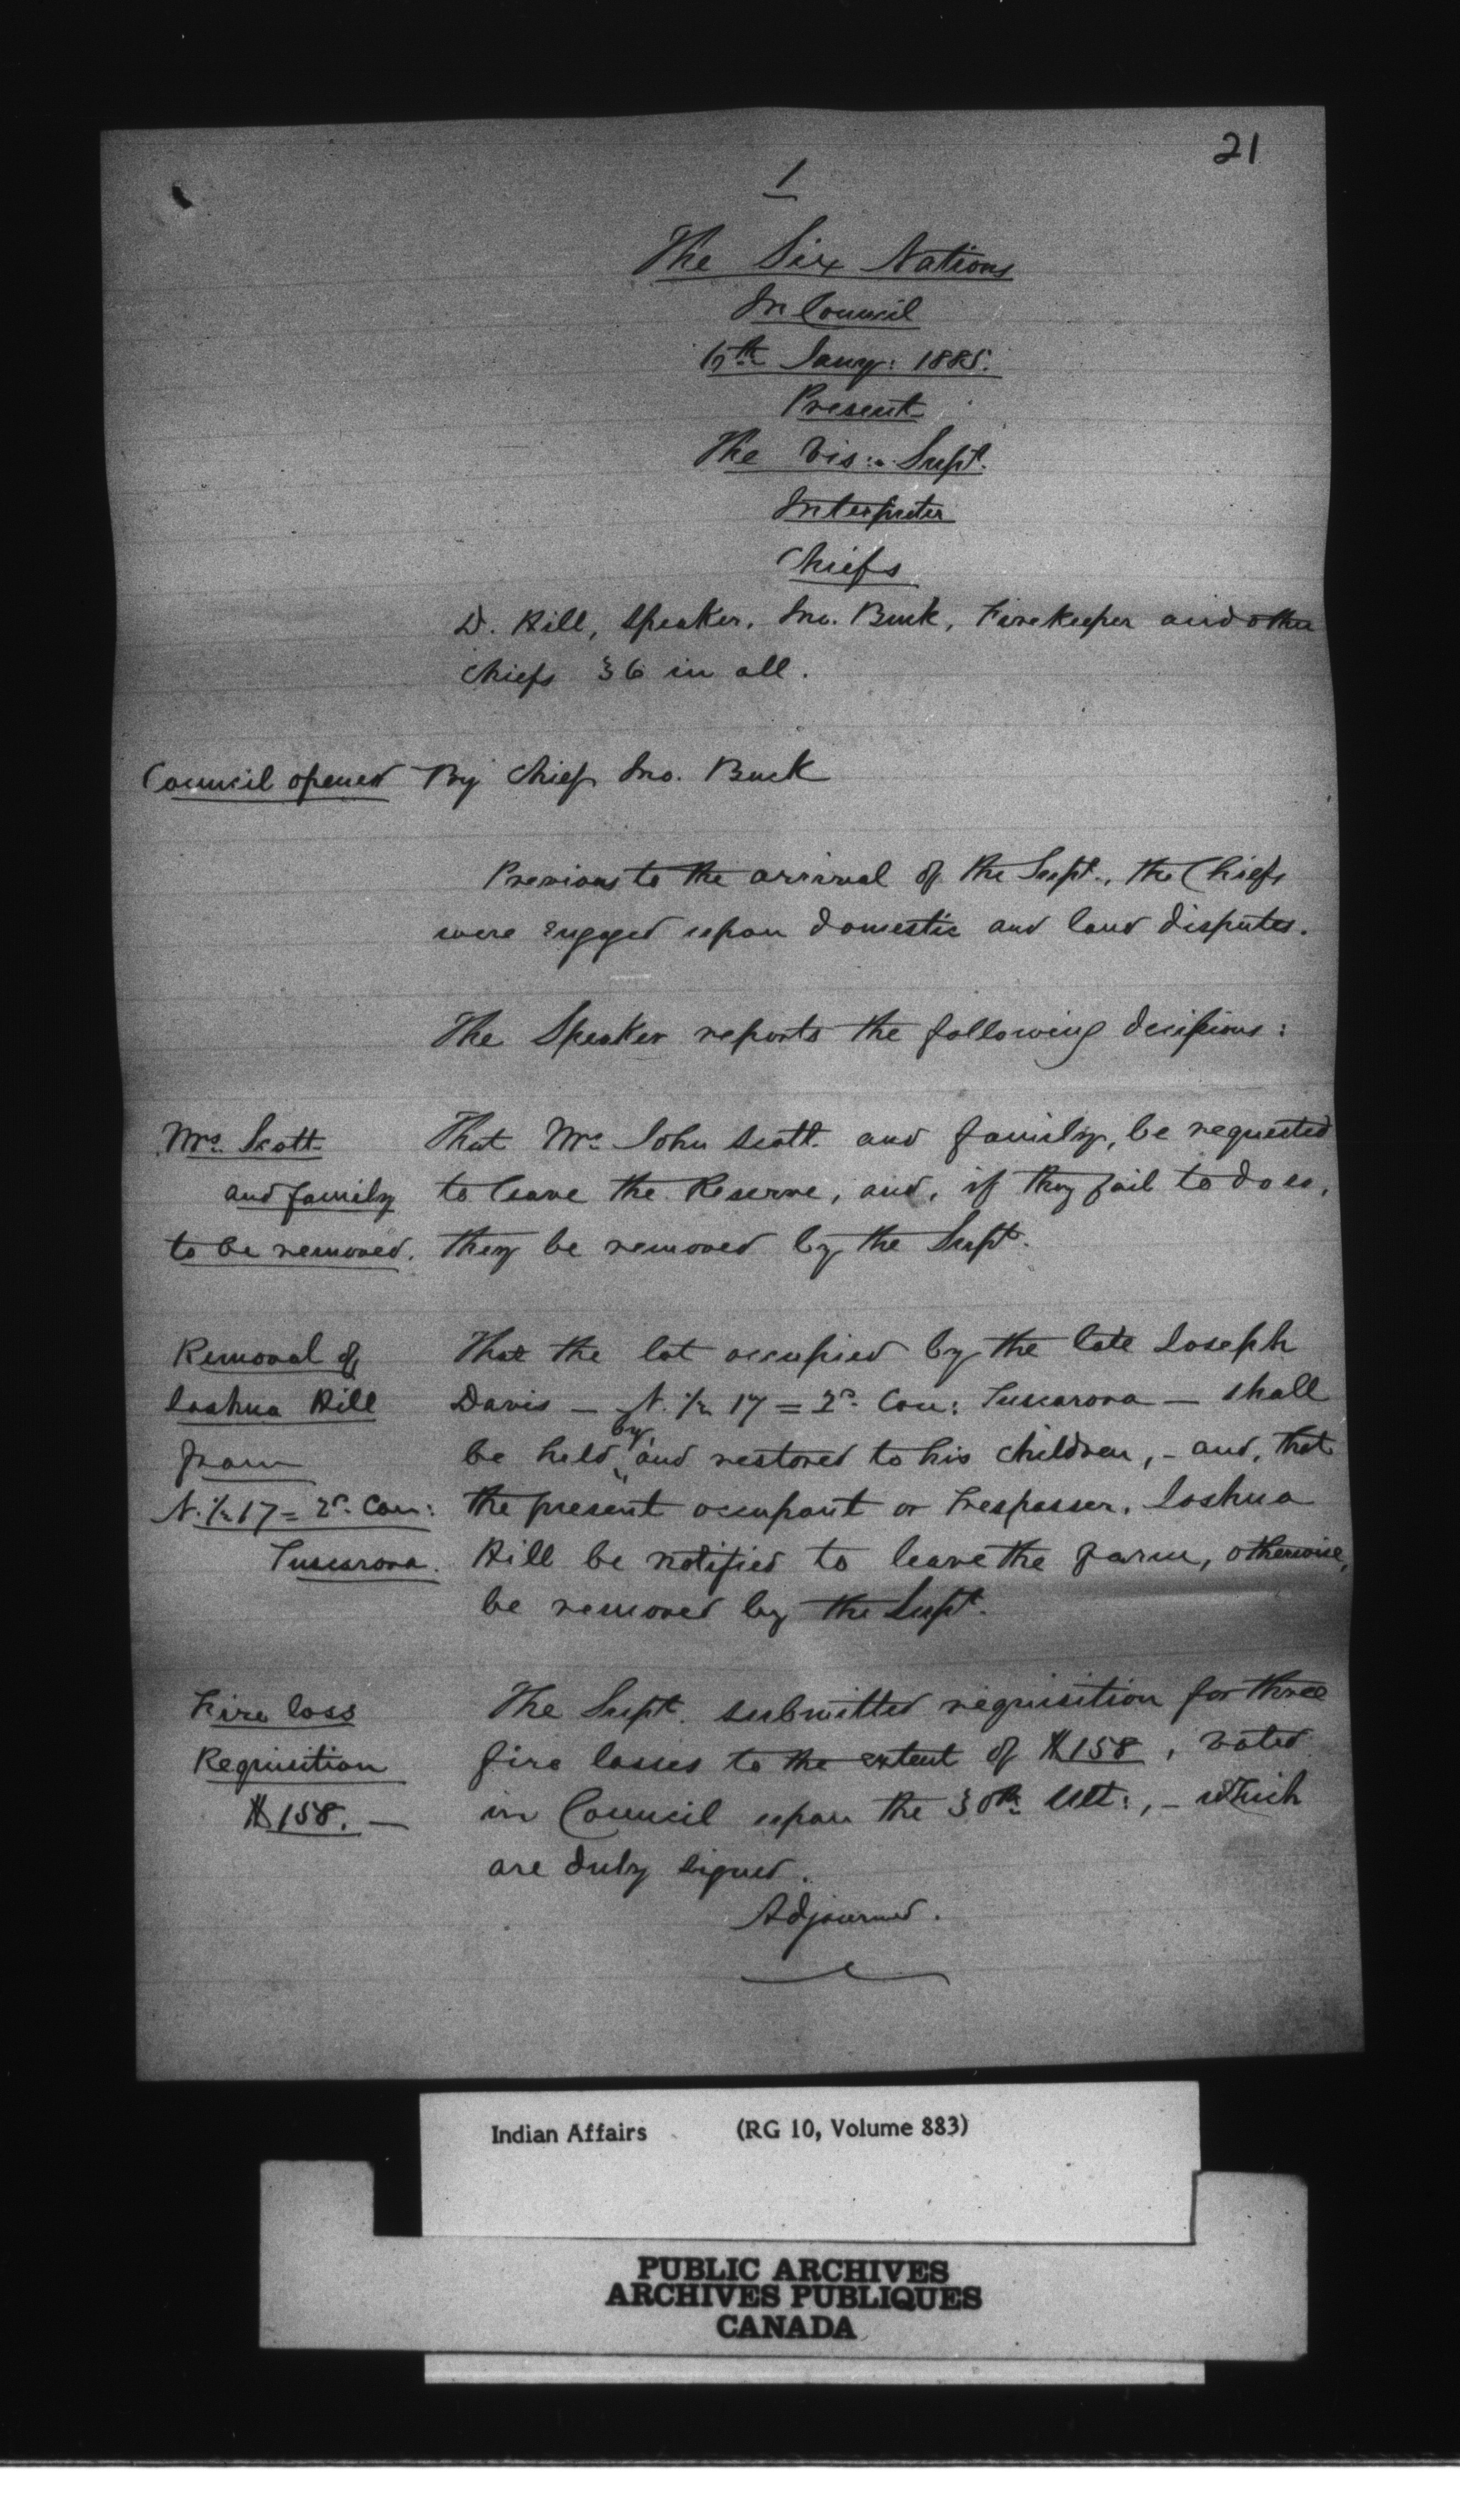 21
1
The Six Nations
In Council
Jany: 1885.
Present
The Vis: Supt.
Interpreter
Chiefs
D. Hill, Speaker, Jno. Buck, Firekeeper and other
Chiefs 36 in all.
Council opened By Chief Jno. Buck
Previous to the arrival of the Supt., the Chiefs
were engaged upon domestic and land disputes.
The Speaker reports the following decisions:
Mrs. Scott That Mrs. John Scott and family, be requested
and family to leave the Reserve, and, if they fail to do so,
to be removed. they be removed by the Supt.
Removal of That the lot occupied by the late Joseph
Joshua Hill Davis — N. 1/2 17 = 2d. Con: Tuscarora — shall
from be held by, and restored to his children, - and, that
N. 1/2 17 = 2d. Con: the present occupant or trespasser, Joshua
Tuscarora. Hill be notified to leave the farm, otherwise,
be removed by the Supt.
Fire loss The Supt. submitted requisition for three
Requisition fire losses to the extent of $158, voted
$158. — in Council upon the 30th. Ult:, - which
are duly signed.
Adjourned.
Indian Affairs (RG 10, Volume 883)
PUBLIC ARCHIVES
ARCHIVES PUBLIQUES
CANADA